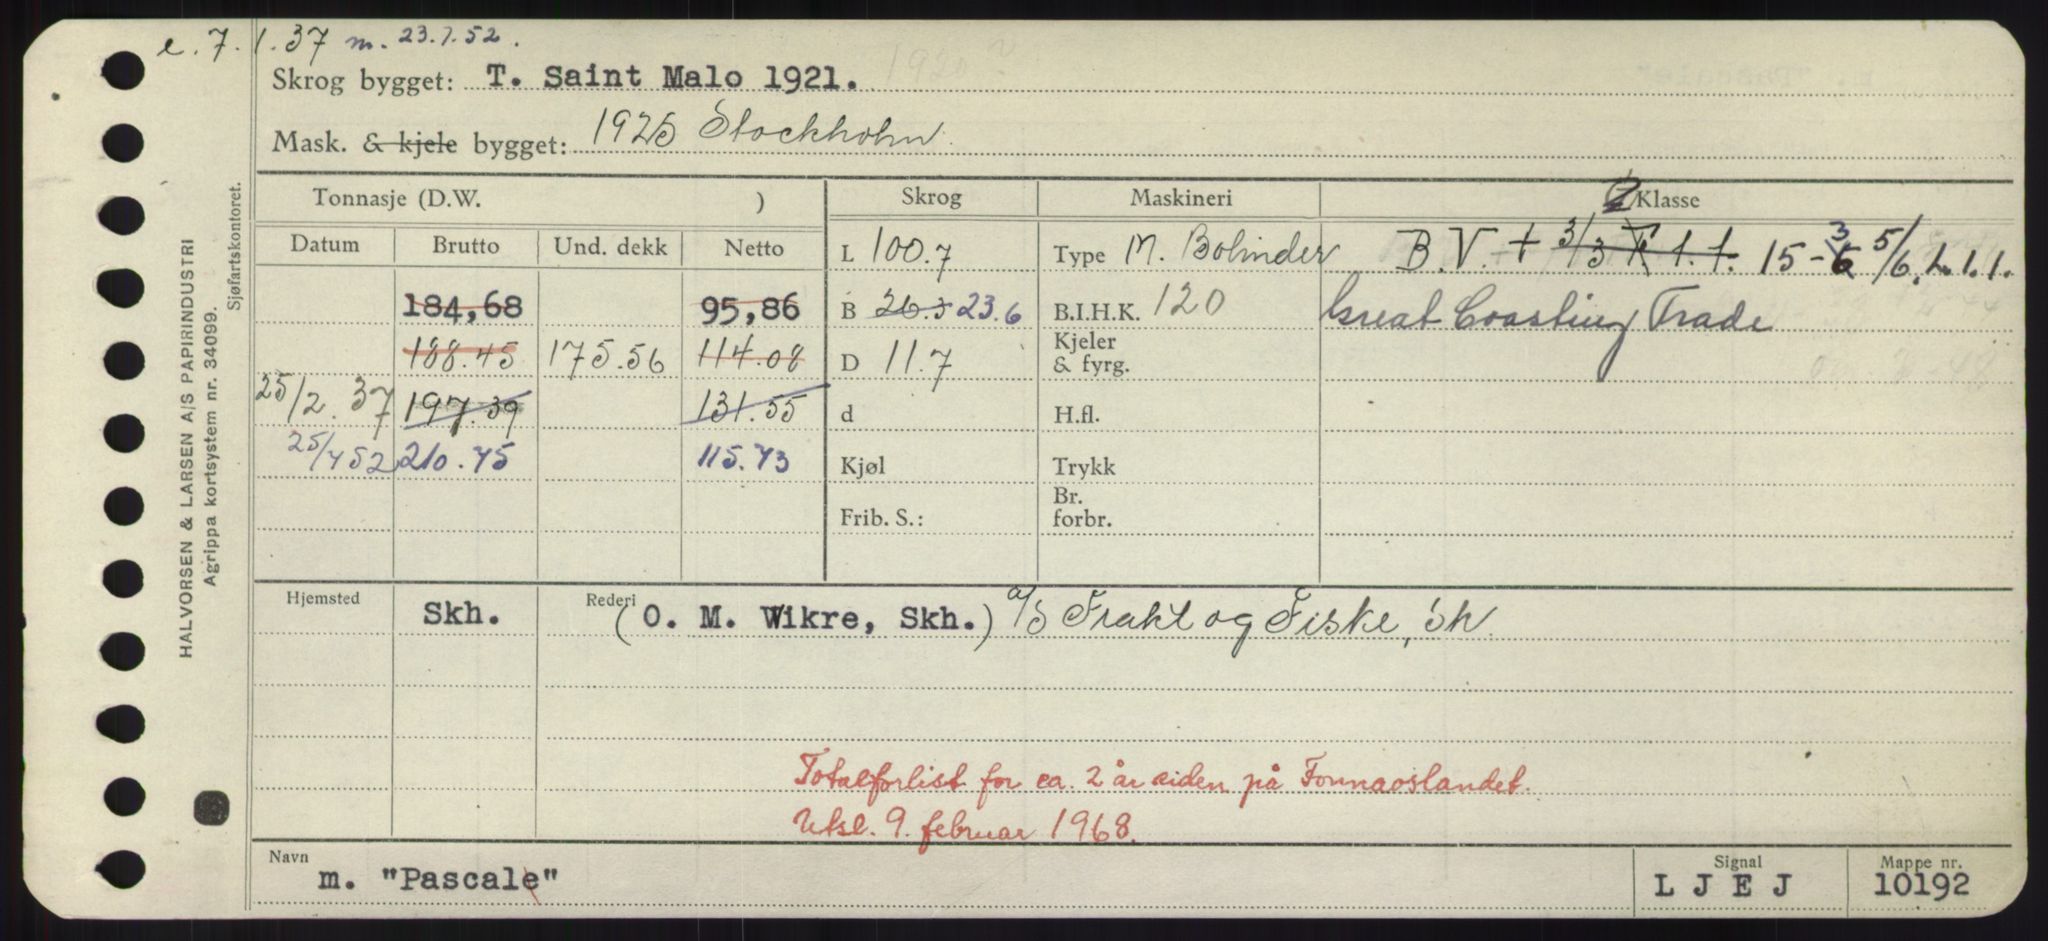 e. 7. 1. 37 m. 23.7.52.
Skrog bygget: T. Saint Malo 1921.
Mask. & kjele bygget: 1925 Stockholm
Tonnasje (D.W. ) Skrog Maskineri Klasse
Datum Brutto Und. dekk Netto L 100.7 Type M. Bolinder B.V. + 3/3 1.1. 15-3 5/6. 1.1.1.
184,68 95,86 B 26.5 23.6 B.I.H.K. 120 Great Coasting Trade
188.45 175.56 114.08 D 11.7 Kjeler & fyrg.
25/2.37 197.39 131.55 d H.fl.
25/7 52 210.75 115.73 Kjøl Trykk
Frib. S.: Br. forbr.
Hjemsted Skh. Rederi (O. M. Wikre, Skh.) a/s Frakt og Fiske, Sh
Totalforlist for ca. 2 år siden på Fonnaoslandet.
Utsl. 9. februar 1968.
Navn m. "Pascale" Signal L J E J Mappe nr. 10192
HALVORSEN & LARSEN A/S PAPIRINDUSTRI
Agrippa kortsystem nr. 34099.
Sjøfartskontoret.